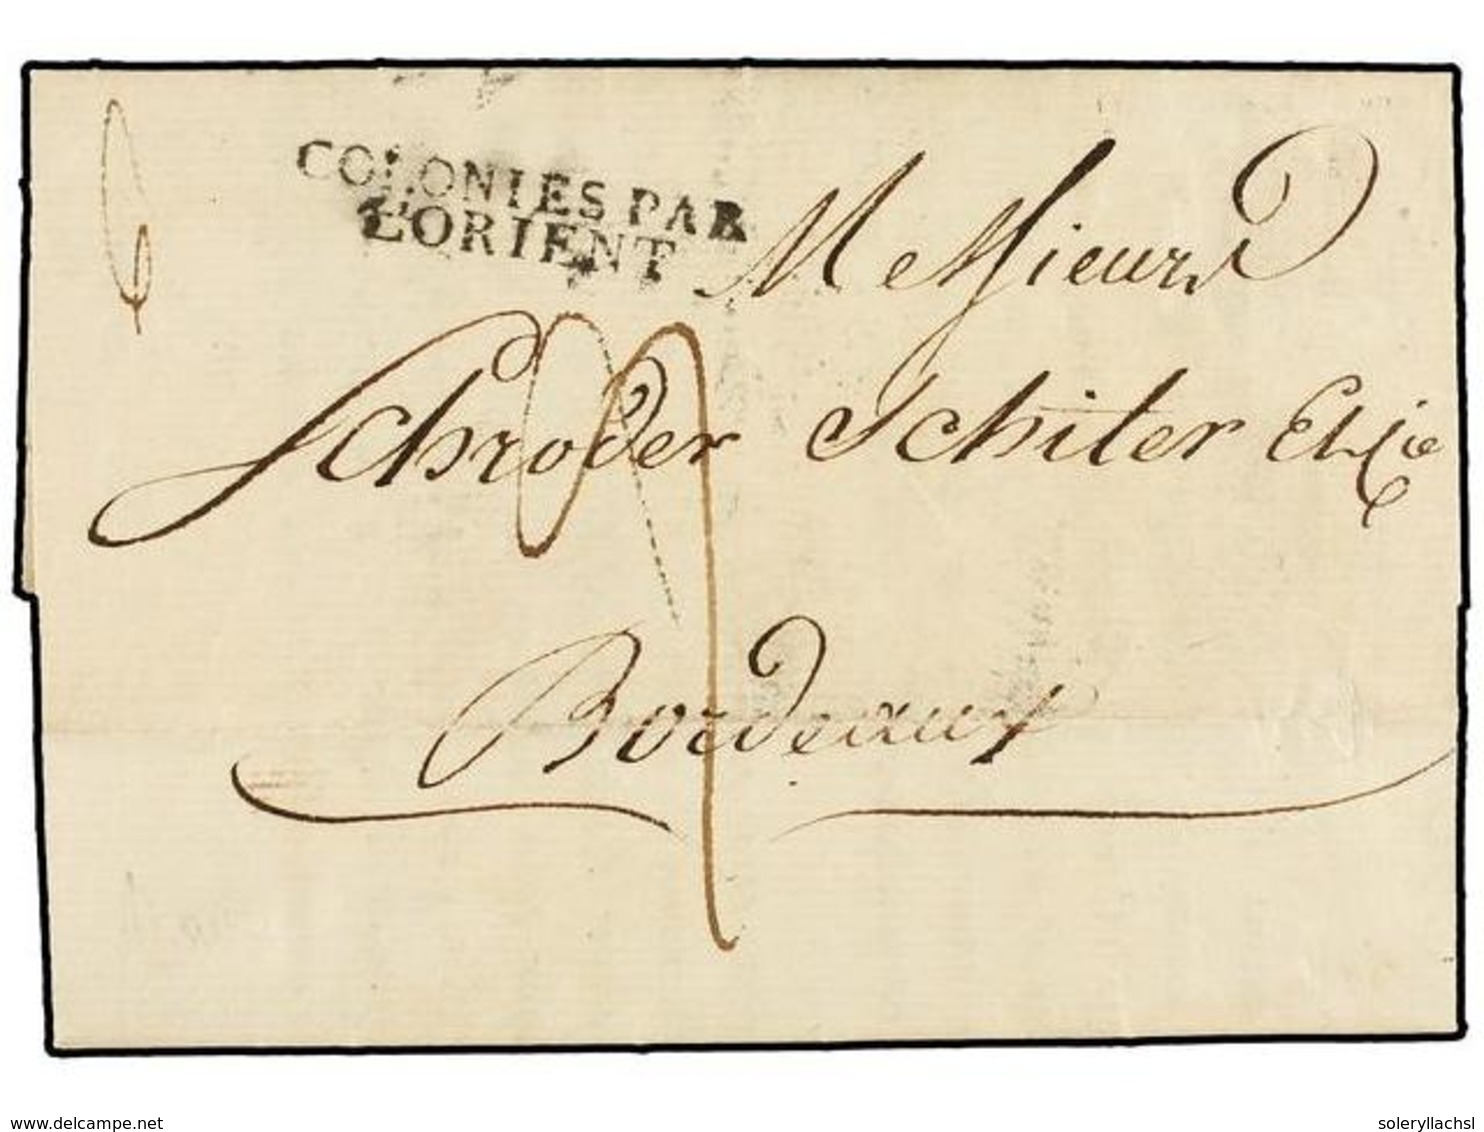 COLONIES PAR
L'ORIENT
Messieurs
Schroder Schiler Et Cie
Bordeaux
delcampe.net
soleryllachsl